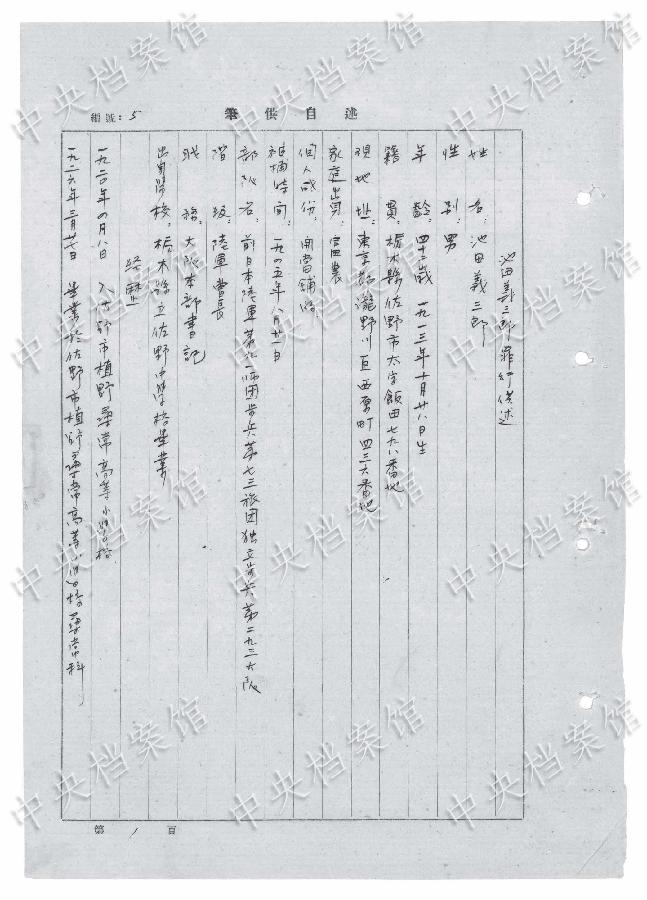 述自供筆
編號：5
池田義三郎罪行供述
姓名：池田義三郎
性別：男
年齡：四十二歲 一九一三年十月廿八日生
籍貫：栃木縣佐野市大字飯田七九八番地
現地址：東京都瀧野川区西原町四三六番地
家庭出身：富農
個人成份：開當舖
被捕時间：一九四五年八月廿一日
部队名：前日本陸軍第九一师团步兵第七三旅团独立步兵第二九三大队
階級：陸軍曹長
职務：大队本部書記
出身学校：栃木縣立佐野中学校畢業
経歷
一九二〇年四月八日 入佐野市植野尋常高等小学校
一九二六年三月廿七日 畢業於佐野市植野尋常高等小学校尋常科
第1頁
中央档案馆